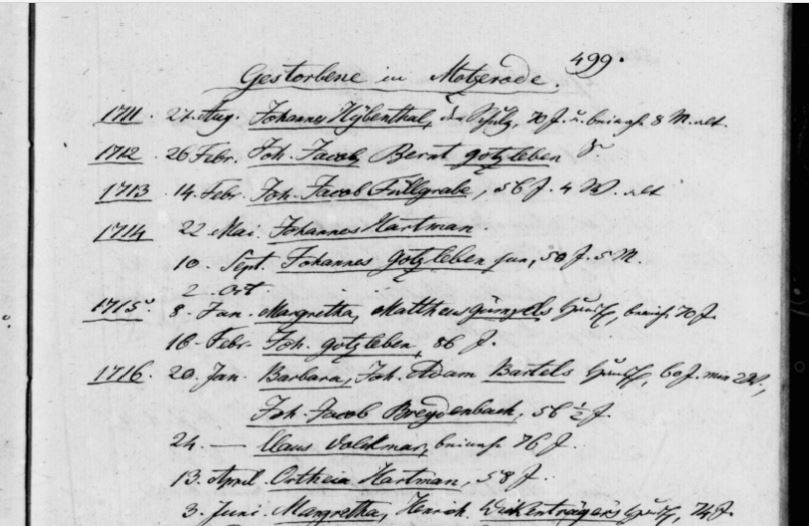 499.
Gestorbene in Motzerode.
1711. 27. Aug. Johannes Hybenthal, 70 J. u. beinahe 8 M. alt.
1712. 26 Febr. Joh. Jacob Bernt Gotzleben
1713. 14. Febr. Joh. Jacob Füllgrabe, 56 J. 4 W. alt
1714 22. Mai. Johannes Hartman.
10. Sept. Johannes Gotzleben jun, 50 J. 5 M.
2. Oct.
1715. 8. Jan. Margretha, Mattheus Hausfr., beinah. 70 J.
16. Febr. Joh. Gotzleben, 86 J.
1716. 20. Jan. Barbara, Joh. Adam Bartels Hausfr, 60 J. min
Joh. Jacob Breydenbach, 56 ½ J.
24. — Claus Volckmar, beinah. 76 J.
13. April. Ortheia Hartman, 58 J.
3. Juni. Margretha, Henrch. Hausfr, 74 J.